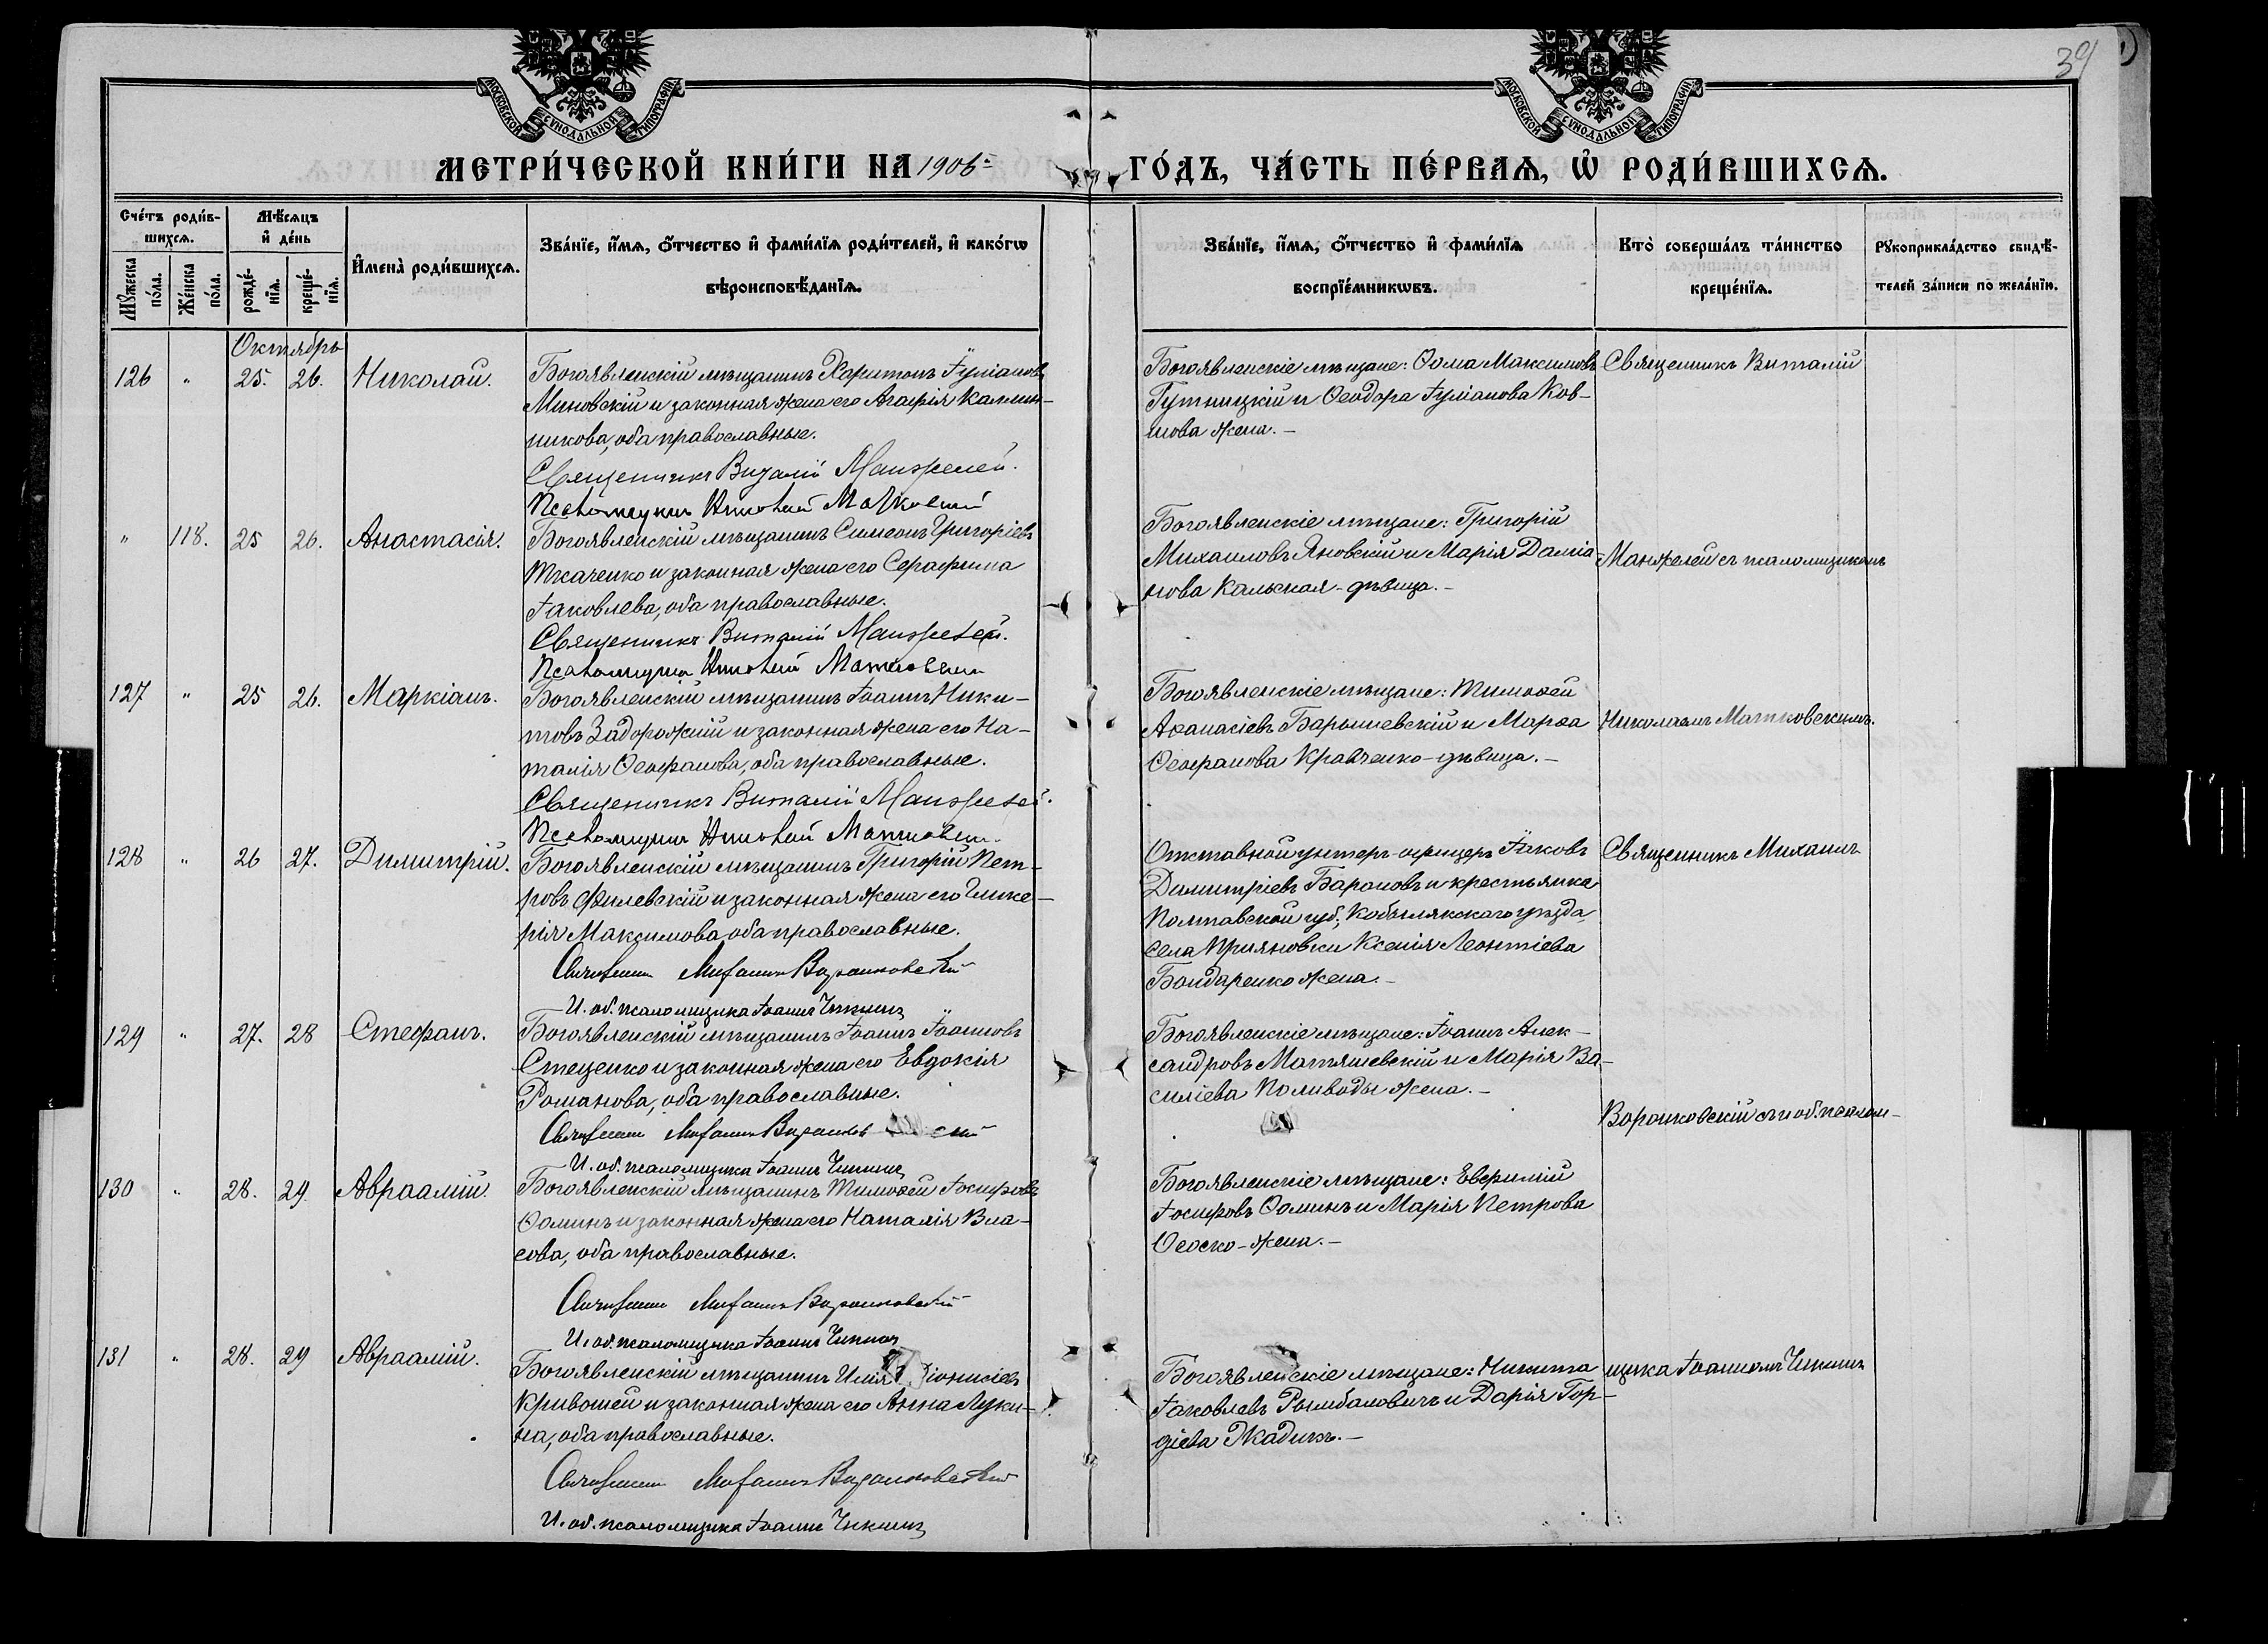 39
МОСКОВСКОЙ СУНОДАЛЬНОЙ ТИПОГРАФІИ
МОСКОВСКОЙ СУНОДАЛЬНОЙ ТИПОГРАФІИ
МЕТРИ́ЧЕСКОЙ КНИ́ГИ НА 1906 ГО́ДЪ, ЧА́СТЬ ПЕ́РВАѦ, Ѡ҆ РОДИ́ВШИХСѦ.
Сче́тъ роди́в-
шихсѧ.
Мѣ́сѧцъ
и҆ де́нь
Мꙋ́жеска по́ла.
Же́нска по́ла.
рожде́-
нїѧ.
креще́-
нїѧ.
И҆мена̀ роди́вшихсѧ.
Зва́нїе, и҆́мѧ, ѻ҆́тчество и҆ фами́лїѧ роди́телей, и҆ како́гѡ
вѣроисповѣ́данїѧ.
Зва́нїе, и҆́мѧ, ѻ҆́тчество и҆ фами́лїѧ
воспрїе́мникѡвъ.
Кто̀ соверша́лъ та́инство
креще́нїѧ.
Рꙋкоприкла́дство свидѣ́-
телей за́писи по жела́нїю.
Октябрь
126 " 25. 26. Николай.
Богоявленскій мѣщанинъ Харитонъ Іуліановъ
Миновскій и законная жена его Агафія Калин-
никова, оба православные.
Священникъ Виталій Манжелей.
Псаломщикъ Николай Матковскій
Богоявленскіе мѣщане: Ѳома Максимовъ
Гутницкій и Ѳеодора Іуліанова Ков-
шова жена.-
Священникъ Виталій
" 118. 25 26. Анастасія.
Богоявленскій мѣщанинъ Симеонъ Григоріевъ
Ткаченко и законная жена его Серафима
Іаковлева, оба православные.
Священникъ Виталій Манжелей.
Псаломщикъ Николай Матковскій
Богоявленскіе мѣщане: Григорій
Михаиловъ Яновскій и Марія Даміа-
нова Кальская-дѣвица.-
Манжелей съ псаломщикомъ
127 " 25 26. Маркіанъ.
Богоявленскій мѣщанинъ Іоаннъ Ники-
товъ Задорожній и законная жена его На-
талія Ѳеофанова, оба православные.
Священникъ Виталій Манжелей.
Псаломщикъ Николай Матковскій
Богоявленскіе мѣщане: Тимоѳей
Аѳанасіевъ Барышевскій и Марѳа
Ѳеофанова Кравченко-дѣвица.-
Николаемъ Матковскимъ.
128 " 26 27. Димитрій.
Богоявленскій мѣщанинъ Григорій Пет-
ровъ Филевскій и законная жена его Глике-
рія Максимова, оба православные.
Священникъ Михаилъ Воронковскій
И. об. псаломщика Іоаннъ Чикинъ
Отставной унтеръ-офицеръ Іаковъ
Димитріевъ Барановъ и крестьянка
Полтавской губ., Кобылякскаго уѣзда
села Прияновки Ксенія Леонтіева
Бондаренко жена.-
Священникъ Михаилъ
129 " 27. 28 Стефанъ.
Богоявленскій мѣщанинъ Іоаннъ Іоанновъ
Стеценко и законная жена его Евдокія
Романова, оба православные.
Священникъ Михаилъ Воронковскій
И. об. псаломщика Іоаннъ Чикинъ
Богоявленскіе мѣщане: Іоаннъ Алек-
сандровъ Матяшевскій и Марія Ва-
силіева Поливоды жена.-
Воронковскій съ и об. псалом-
130 " 28. 29. Авраамій.
Богоявленскій мѣщанинъ Тимоѳей Іосифовъ
Ѳоминъ и законная жена его Наталія Вла-
сова, оба православные.
Священникъ Михаилъ Воронковскій
И. об. псаломщика Іоаннъ Чикинъ
Богоявленскіе мѣщане: Евфимій
Іосифовъ Ѳоминъ и Марія Петрова
Ѳеоско-жена.-
131 " 28. 29 Авраамій.
Богоявленскій мѣщанинъ Илія Діонисіевъ
Кривошей и законная жена его Анна Луки-
на, оба православные.
Священникъ Михаилъ Воронковскій
И. об. псаломщика Іоаннъ Чикинъ
Богоявленскіе мѣщане: Никита
Іаковлевъ Рымбаловичъ и Дарія Гор-
діева Жадикъ.-
щика Іоанномъ Чикинъ